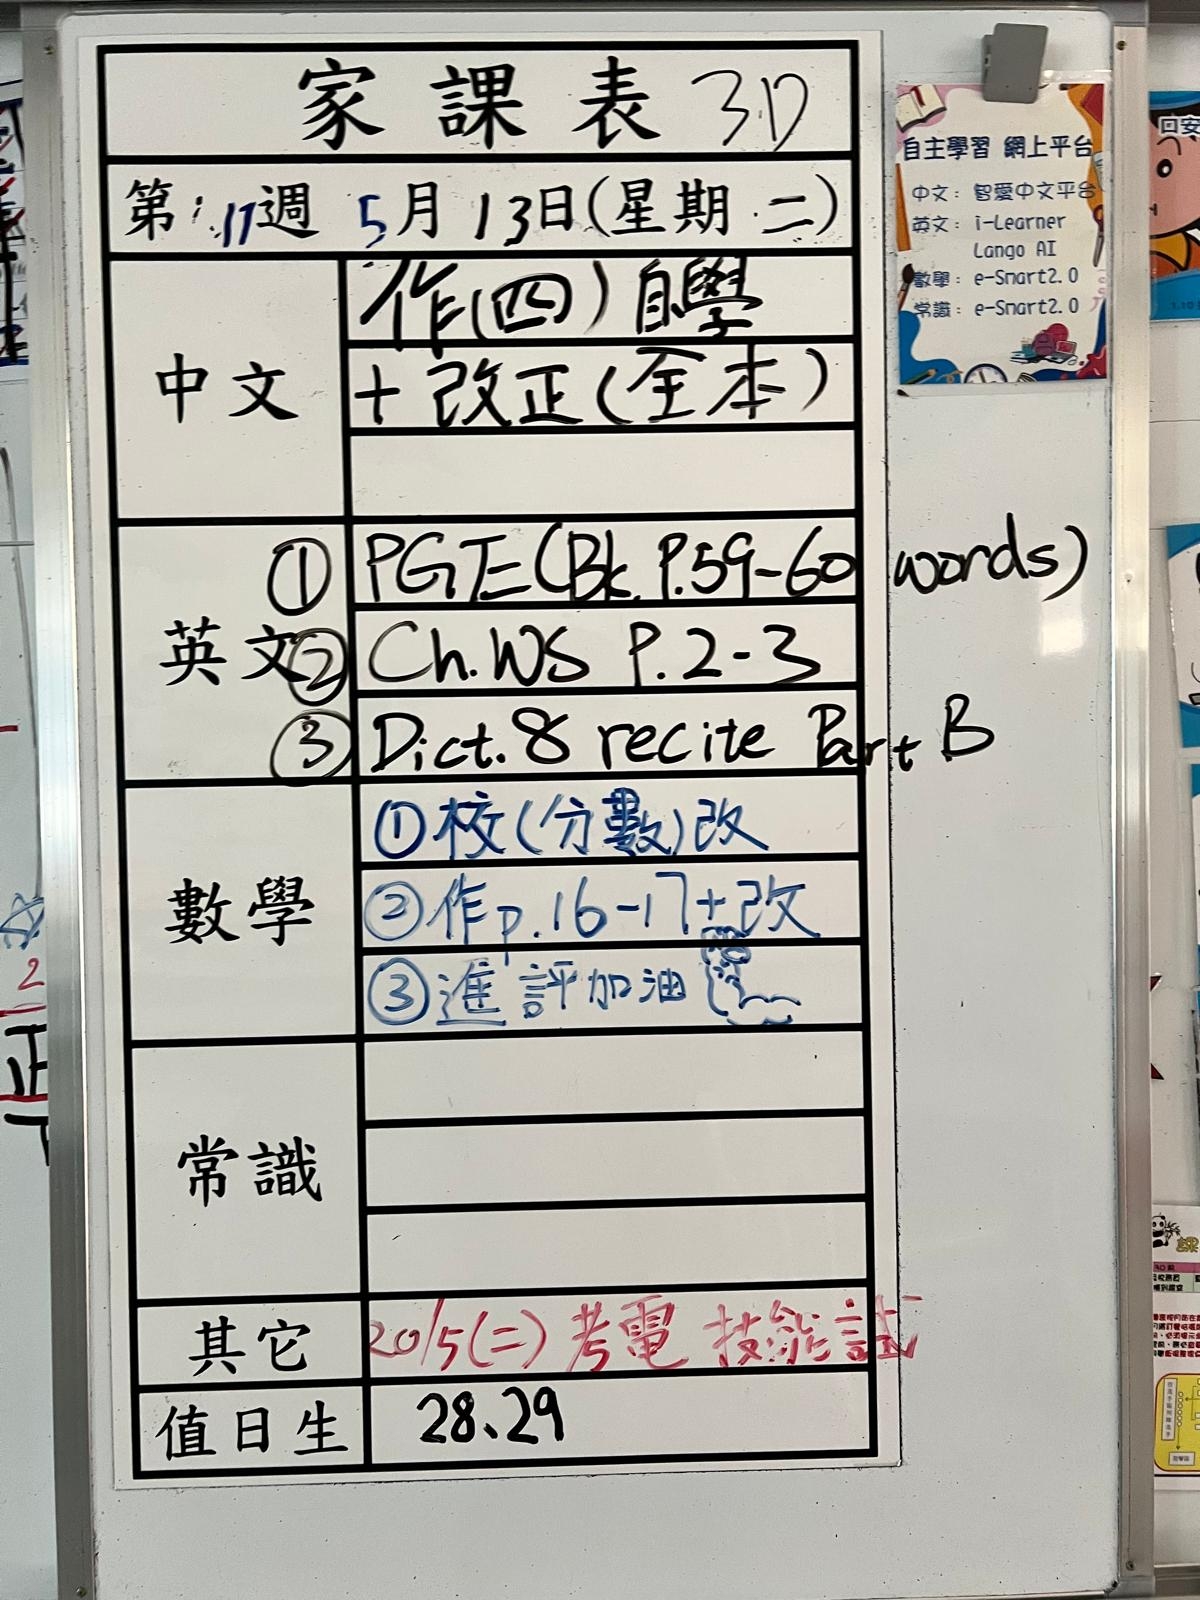 家課表 3D
第17週 5月13日(星期二)
中文
作(四)自學
+改正(全本)
英文
① PGE(Bk. P.59-60 words)
② Ch.WS P.2-3
③ Dict.8 recite Part B
數學
①校(分數)改
②作p.16-17+改
③進評加油
常識
其它
20/5(二)考電 技能試
值日生
28、29
自主學習 網上平台
中文：智愛中文平台
英文：i-Learner
Lango AI
數學：e-Smart2.0
常識：e-Smart2.0
回安
2
正